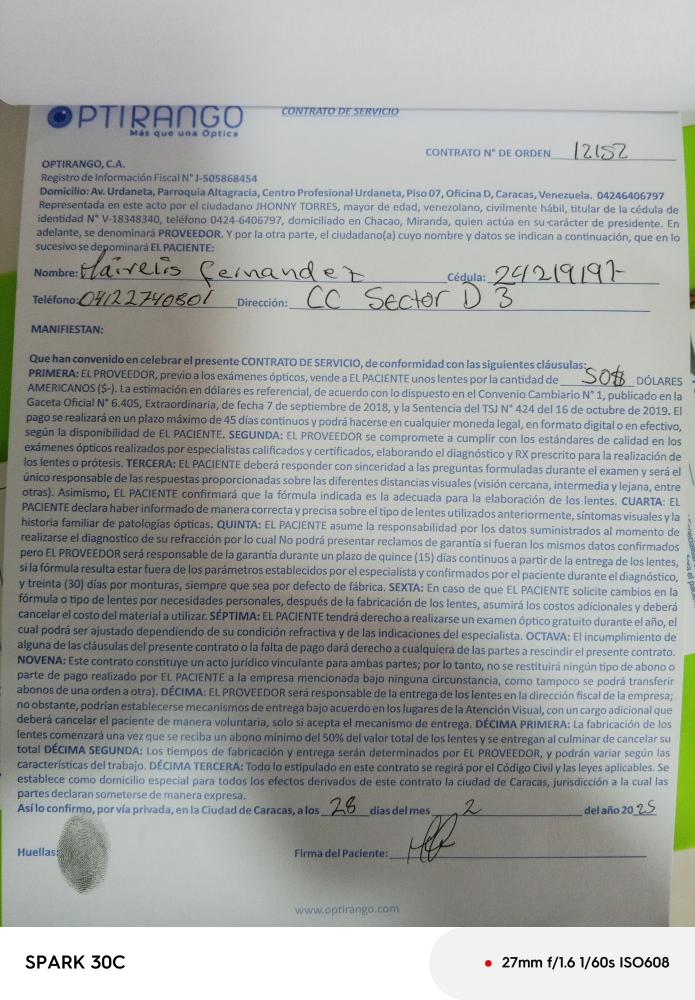 OPTIRANGO
Más que una Óptica
CONTRATO DE SERVICIO
CONTRATO N° DE ORDEN 12152
OPTIRANGO, C.A.
Registro de Información Fiscal N° J-505868454
Domicilio: Av. Urdaneta, Parroquia Altagracia, Centro Profesional Urdaneta, Piso 07, Oficina D, Caracas, Venezuela. 04246406797
Representada en este acto por el ciudadano JHONNY TORRES, mayor de edad, venezolano, civilmente hábil, titular de la cédula de
identidad N° V-18348340, teléfono 0424-6406797, domiciliado en Chacao, Miranda, quien actúa en su carácter de presidente. En
adelante, se denominará PROVEEDOR. Y por la otra parte, el ciudadano(a) cuyo nombre y datos se indican a continuación, que en lo
sucesivo se denominará EL PACIENTE:
Nombre: Mairelis Fernandez Cédula: 24219197
Teléfono: 04122740801 Dirección: CC Sector D 3
MANIFIESTAN:
Que han convenido en celebrar el presente CONTRATO DE SERVICIO, de conformidad con las siguientes cláusulas:
PRIMERA: EL PROVEEDOR, previo a los exámenes ópticos, vende a EL PACIENTE unos lentes por la cantidad de 50$ DÓLARES
AMERICANOS ($-). La estimación en dólares es referencial, de acuerdo con lo dispuesto en el Convenio Cambiario N° 1, publicado en la
Gaceta Oficial N° 6.405, Extraordinaria, de fecha 7 de septiembre de 2018, y la Sentencia del TSJ N° 424 del 16 de octubre de 2019. El
pago se realizará en un plazo máximo de 45 días continuos y podrá hacerse en cualquier moneda legal, en formato digital o en efectivo,
según la disponibilidad de EL PACIENTE. SEGUNDA: EL PROVEEDOR se compromete a cumplir con los estándares de calidad en los
exámenes ópticos realizados por especialistas calificados y certificados, elaborando el diagnóstico y RX prescrito para la realización de
los lentes o prótesis. TERCERA: EL PACIENTE deberá responder con sinceridad a las preguntas formuladas durante el examen y será el
único responsable de las respuestas proporcionadas sobre las diferentes distancias visuales (visión cercana, intermedia y lejana, entre
otras). Asimismo, EL PACIENTE confirmará que la fórmula indicada es la adecuada para la elaboración de los lentes. CUARTA: EL
PACIENTE declara haber informado de manera correcta y precisa sobre el tipo de lentes utilizados anteriormente, síntomas visuales y la
historia familiar de patologías ópticas. QUINTA: EL PACIENTE asume la responsabilidad por los datos suministrados al momento de
realizarse el diagnostico de su refracción por lo cual No podrá presentar reclamos de garantía si fueran los mismos datos confirmados
pero EL PROVEEDOR será responsable de la garantía durante un plazo de quince (15) días continuos a partir de la entrega de los lentes,
si la fórmula resulta estar fuera de los parámetros establecidos por el especialista y confirmados por el paciente durante el diagnóstico,
y treinta (30) días por monturas, siempre que sea por defecto de fábrica. SEXTA: En caso de que EL PACIENTE solicite cambios en la
fórmula o tipo de lentes por necesidades personales, después de la fabricación de los lentes, asumirá los costos adicionales y deberá
cancelar el costo del material a utilizar. SÉPTIMA: EL PACIENTE tendrá derecho a realizarse un examen óptico gratuito durante el año, el
cual podrá ser ajustado dependiendo de su condición refractiva y de las indicaciones del especialista. OCTAVA: El incumplimiento de
alguna de las cláusulas del presente contrato o la falta de pago dará derecho a cualquiera de las partes a rescindir el presente contrato.
NOVENA: Este contrato constituye un acto jurídico vinculante para ambas partes; por lo tanto, no se restituirá ningún tipo de abono o
parte de pago realizado por EL PACIENTE a la empresa mencionada bajo ninguna circunstancia, como tampoco se podrá transferir
abonos de una orden a otra). DÉCIMA: EL PROVEEDOR será responsable de la entrega de los lentes en la dirección fiscal de la empresa;
no obstante, podrían establecerse mecanismos de entrega bajo acuerdo en los lugares de la Atención Visual, con un cargo adicional que
deberá cancelar el paciente de manera voluntaria, solo si acepta el mecanismo de entrega. DÉCIMA PRIMERA: La fabricación de los
lentes comenzará una vez que se reciba un abono mínimo del 50% del valor total de los lentes y se entregan al culminar de cancelar su
total DÉCIMA SEGUNDA: Los tiempos de fabricación y entrega serán determinados por EL PROVEEDOR, y podrán variar según las
características del trabajo. DÉCIMA TERCERA: Todo lo estipulado en este contrato se regirá por el Código Civil y las leyes aplicables. Se
establece como domicilio especial para todos los efectos derivados de este contrato la ciudad de Caracas, jurisdicción a la cual las
partes declaran someterse de manera expresa.
Así lo confirmo, por vía privada, en la Ciudad de Caracas, a los 28 días del mes 2 del año 2025
Huellas:
Firma del Paciente:
www.optirango.com
SPARK 30C
27mm f/1.6 1/60s ISO608